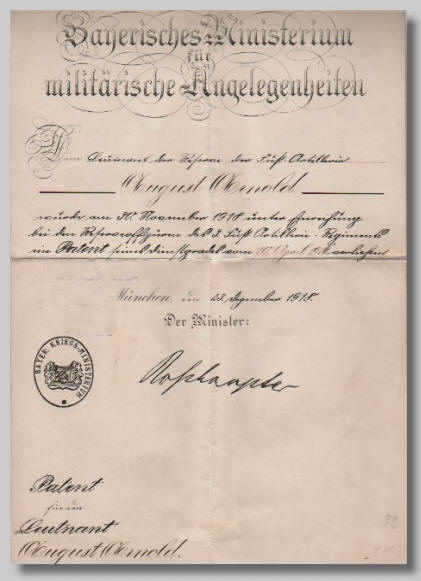 Bayerisches Ministerium
für
militärische Angelegenheiten
Dem Leutnant der Reserve der Fuß-Artillerie
August Arnold
wurde am 30. November 1918 unter Einreihung
bei den Reserveoffizieren des 3. Fuß-Artillerie-Regiments
ein Patent seines Dienstgrades vom verliehen
München, den 23. Dezember 1918.
Der Minister:
Roßhaupter
BAYER. KRIEGS-MINISTERIUM
Patent
für den
Leutnant
August Arnold.